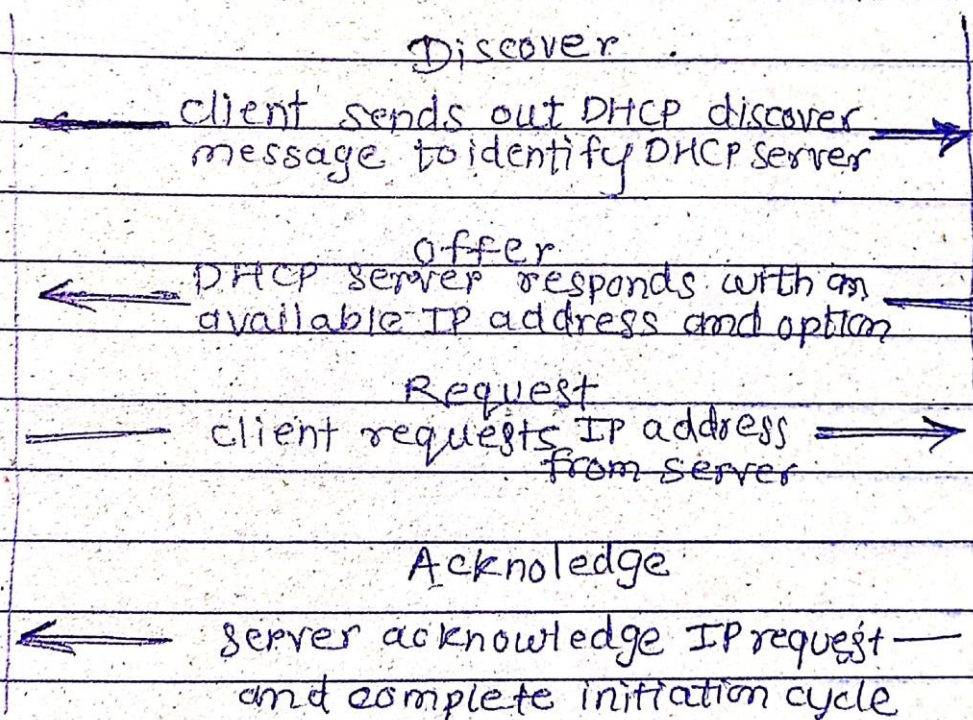 Discover
client sends out DHCP discover
message to identify DHCP server
offer
DHCP server responds with an
available IP address and option
Request
client requests IP address
from server
Acknoledge
server acknowledge IP request
and complete initiation cycle